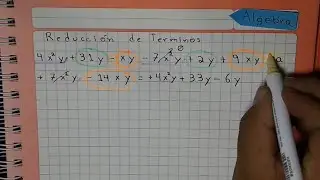 Algebra
Reducción de Terminos
4x²y + 31y - xy - 7x y + 2y + 9xy
+ 7x y - 14xy = +4x²y + 33y - 6